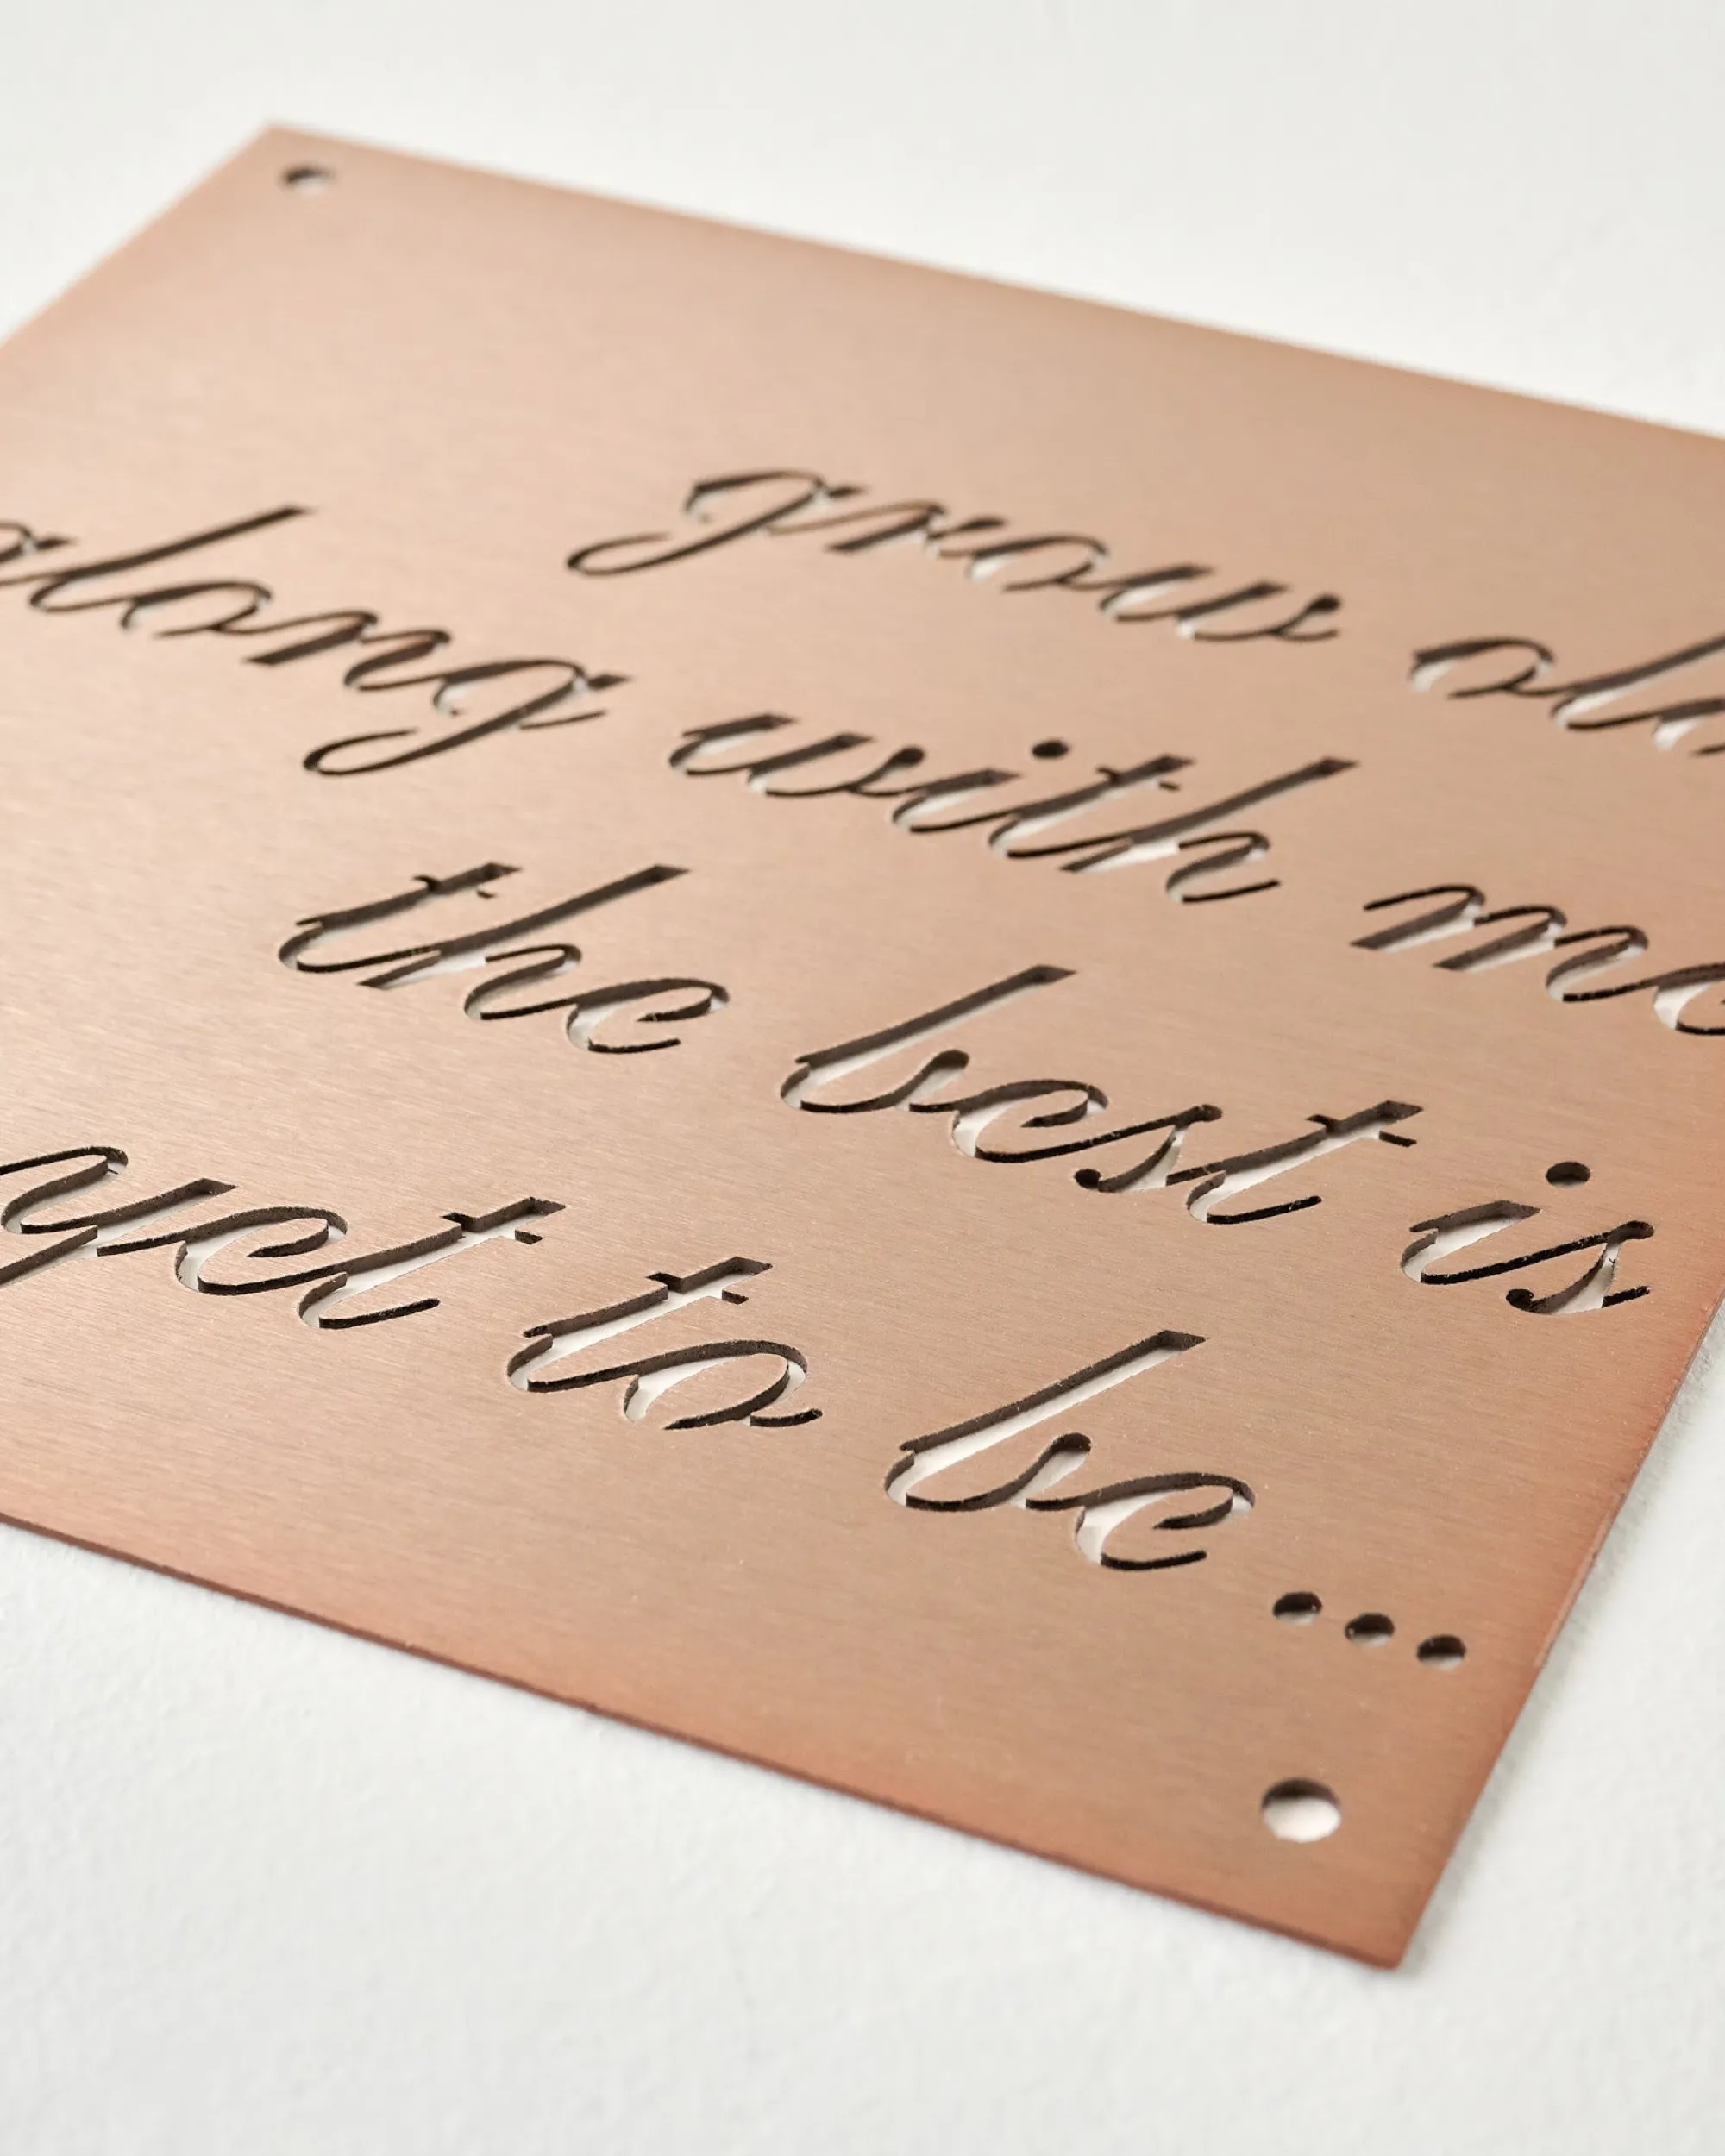 grow old
along with me
the best is
yet to be...